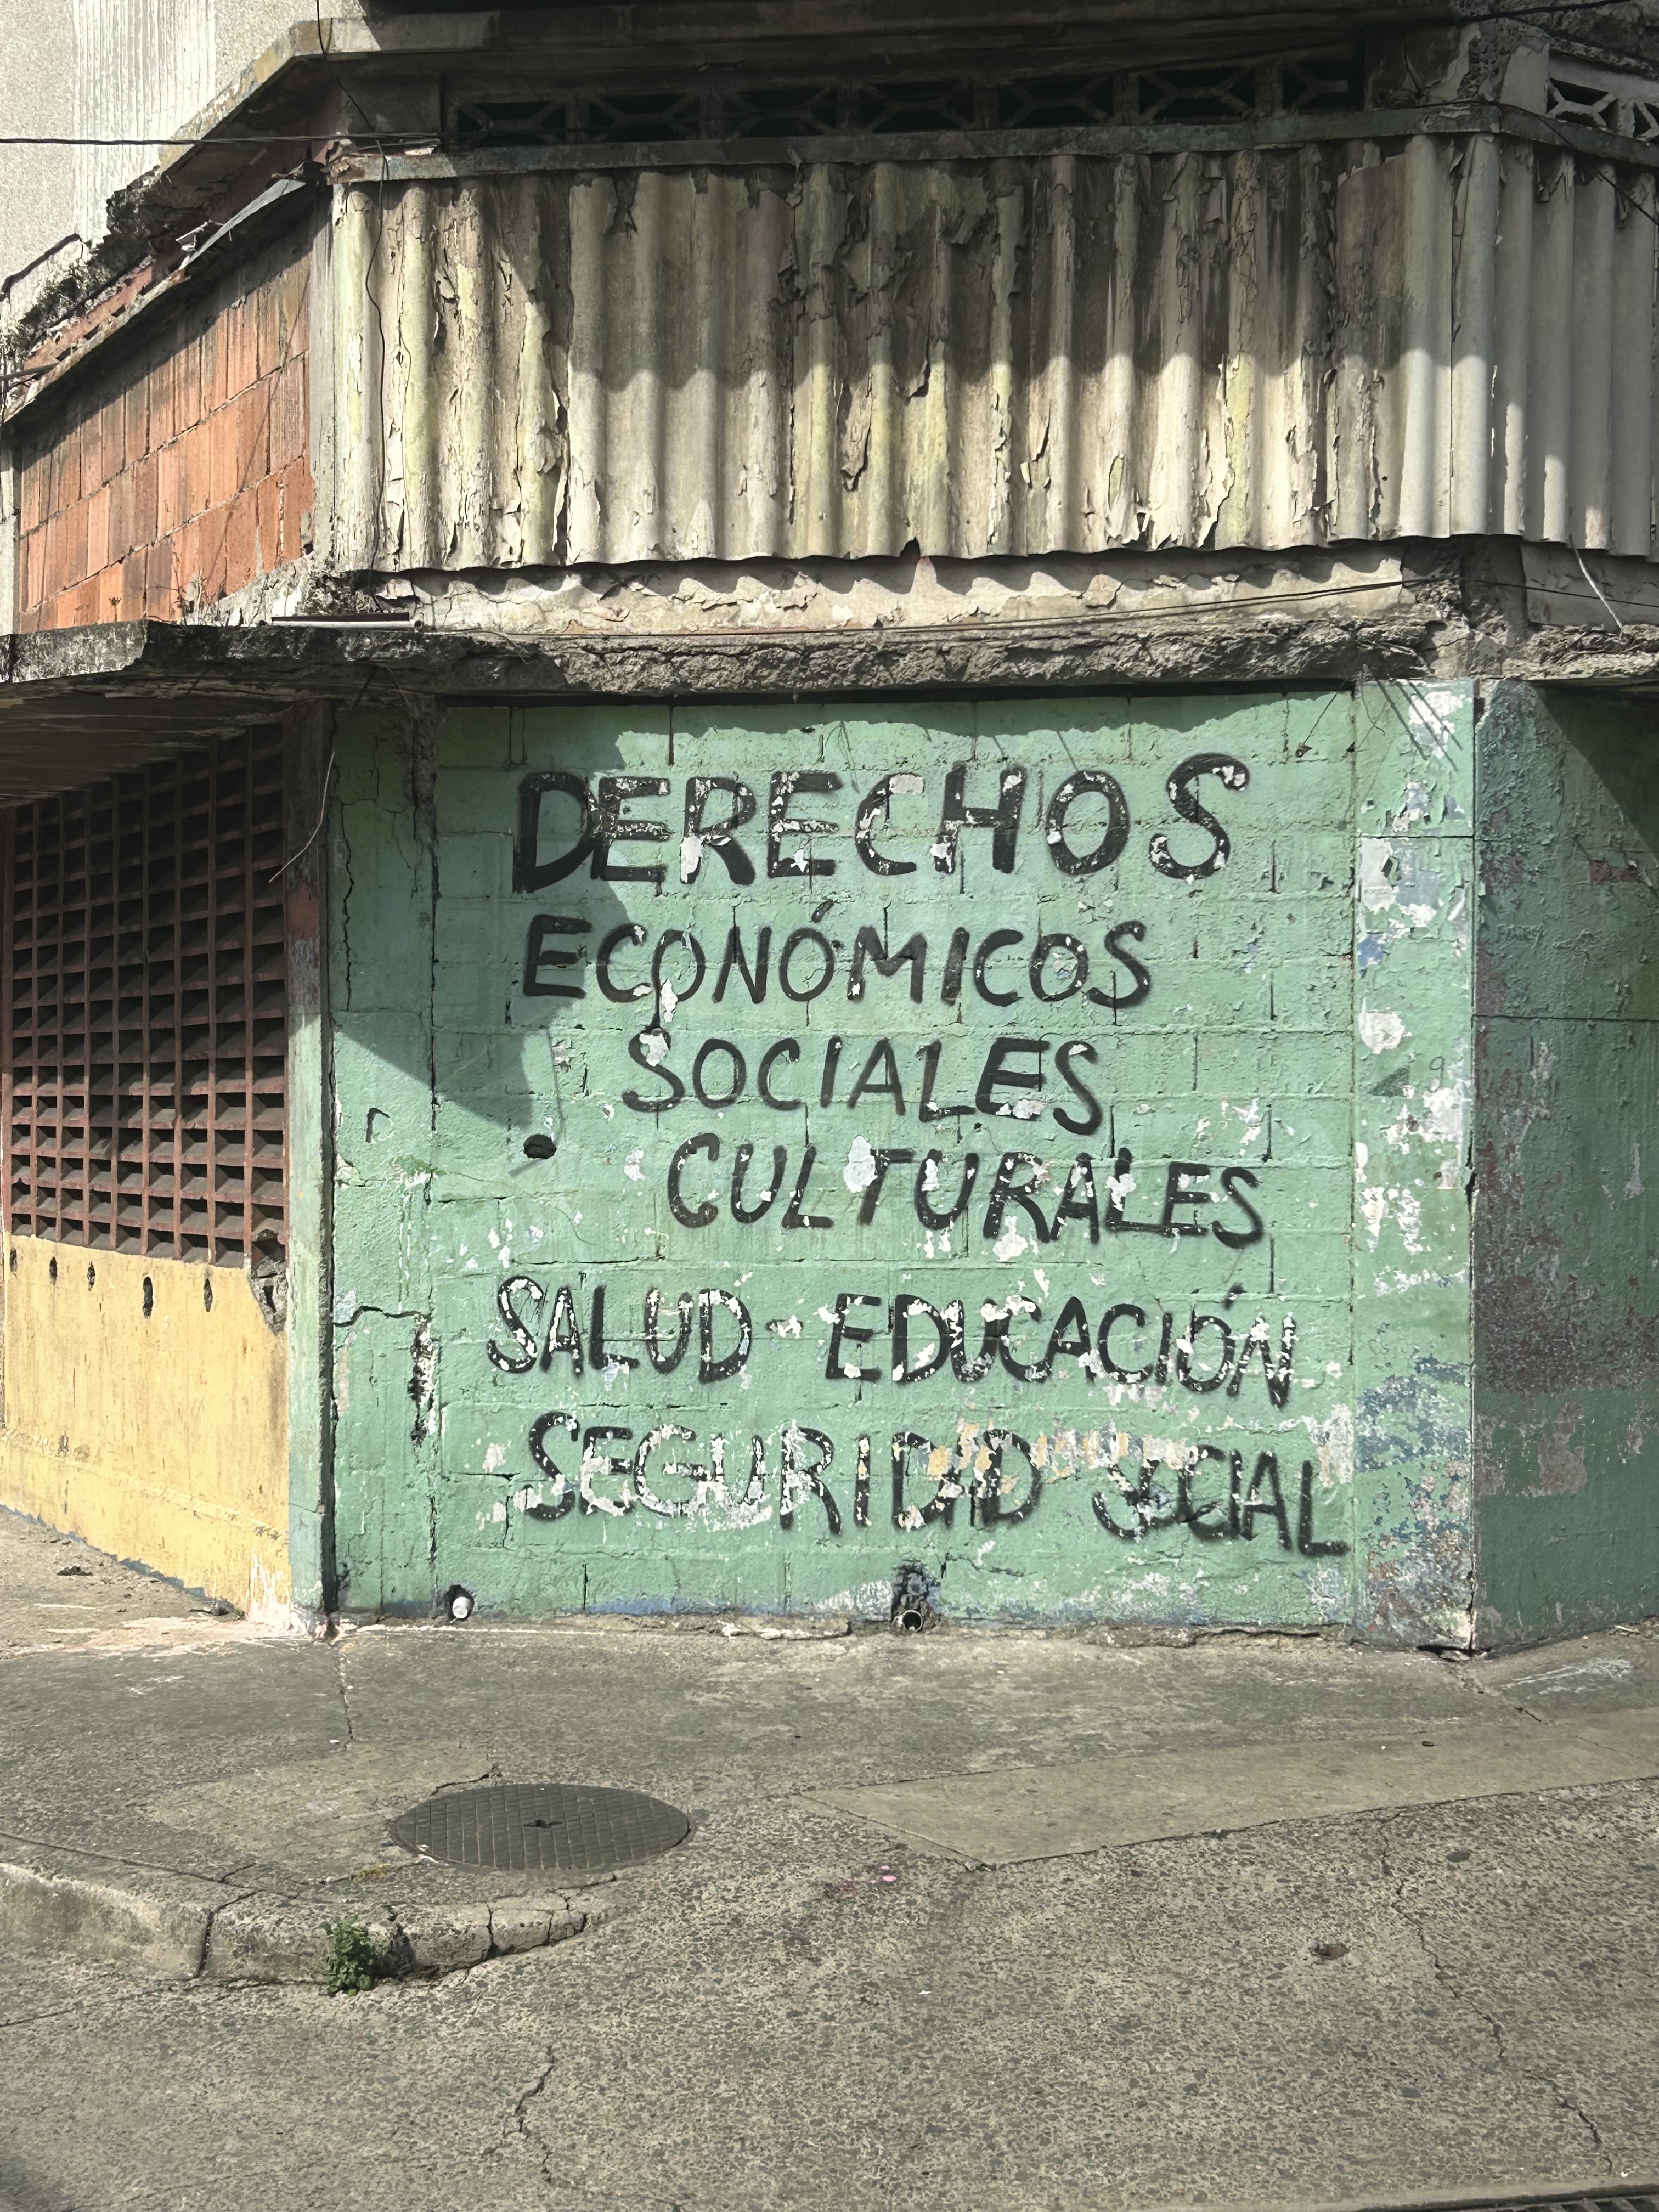 DERECHOS
ECONÓMICOS
SOCIALES
CULTURALES
SALUD - EDUCACIÓN
SEGURIDAD SOCIAL